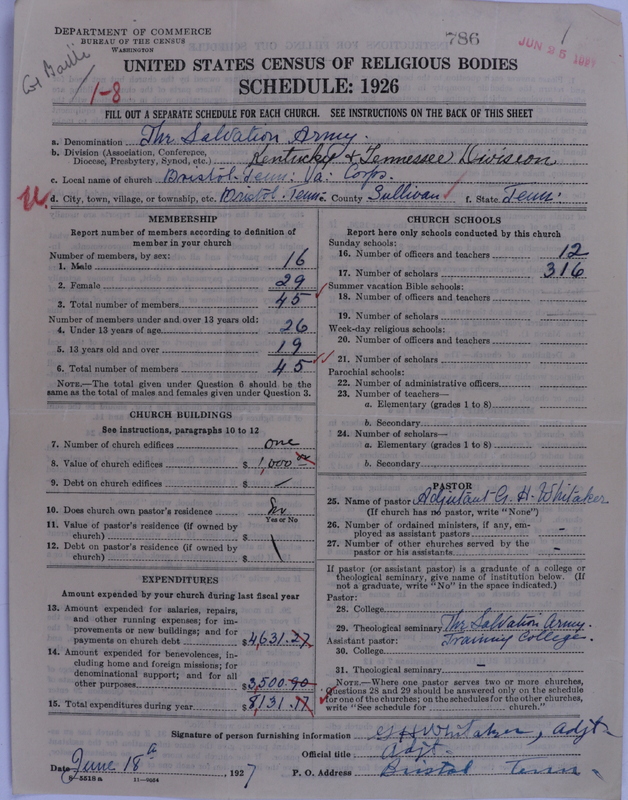 DEPARTMENT OF COMMERCE
BUREAU OF THE CENSUS
WASHINGTON
786
1
JUN 25
1-8
UNITED STATES CENSUS OF RELIGIOUS BODIES
SCHEDULE: 1926
FILL OUT A SEPARATE SCHEDULE FOR EACH CHURCH. SEE INSTRUCTIONS ON THE BACK OF THIS SHEET
a. Denomination The Salvation Army.
b. Division (Association, Conference, Diocese, Presbytery, Synod, etc.) Kentucky & Tennessee Division
c. Local name of church Bristol-Tenn. Va. Corps.
d. City, town, village, or township, etc. Bristol. Tenn. County Sullivan f. State Tenn.
MEMBERSHIP
Report number of members according to definition of
member in your church
Number of members, by sex:
1. Male 16
2. Female 29
3. Total number of members 45
Number of members under and over 13 years old:
4. Under 13 years of age 26
5. 13 years old and over 19
6. Total number of members 45
NOTE.—The total given under Question 6 should be
same as the total of males and females given under Question 3.
CHURCH BUILDINGS
See instructions, paragraphs 10 to 12
7. Number of church edifices one
8. Value of church edifices $ 1,000 00
9. Debt on church edifices $ —
10. Does church own pastor's residence
Yes or No
11. Value of pastor's residence (if owned by
church) $
12. Debt on pastor's residence (if owned by
church) $
EXPENDITURES
Amount expended by your church during last fiscal year
13. Amount expended for salaries, repairs,
and other running expenses; for im-
provements or new buildings; and for
payments on church debt $4,631.27
14. Amount expended for benevolences, in-
cluding home and foreign missions; for
denominational support; and for all
other purposes $3,500.90
15. Total expenditures during year $8,131.77
CHURCH SCHOOLS
Report here only schools conducted by this church
Sunday schools:
16. Number of officers and teachers 12
17. Number of scholars 316
Summer vacation Bible schools:
18. Number of officers and teachers
19. Number of scholars
Week-day religious schools:
20. Number of officers and teachers
21. Number of scholars
Parochial schools:
22. Number of administrative officers
23. Number of teachers—
a. Elementary (grades 1 to 8)
b. Secondary
24. Number of scholars—
a. Elementary (grades 1 to 8)
b. Secondary
PASTOR
25. Name of pastor Adjutant G. H. Whitaker
(If church has no pastor, write "None")
26. Number of ordained ministers, if any, em-
ployed as assistant pastors -
27. Number of other churches served by the
pastor or his assistants -
If pastor (or assistant pastor) is a graduate of a college or
theological seminary, give name of institution below. (If
not a graduate, write "No" in the space indicated.)
Pastor:
28. College
29. Theological seminary The Salvation Army.
Assistant pastor: Training College.
30. College
31. Theological seminary —
NOTE.—Where one pastor serves two or more churches,
Questions 28 and 29 should be answered only on the schedule
for one of the churches; on the schedules for the other churches,
write "See schedule for ............ church."
Signature of person furnishing information G H Whitaker, Adjt
Official title Adjt.
Date June 18th, 1927 P. O. Address Bristol Tenn.
8—5518 a 11—9004